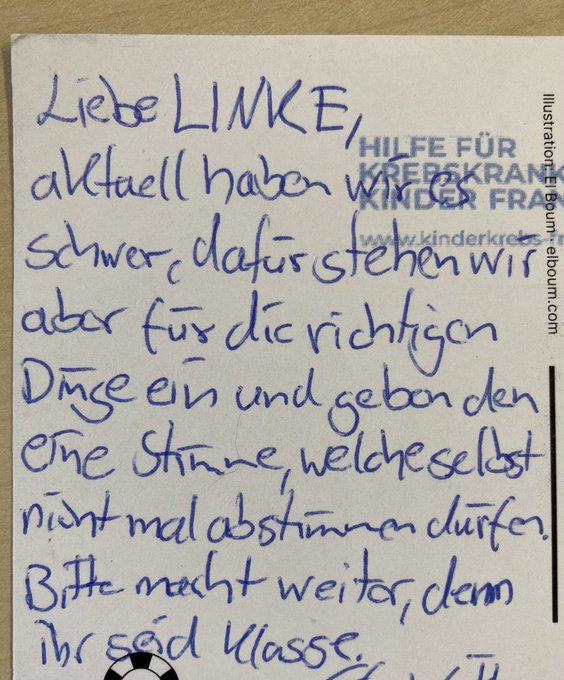 Liebe LINKE,
HILFE FÜR
KREBSKRANK
KINDER FRAN
www.kinderkrebs-fr
aktuell haben wir es
schwer, dafür stehen wir
aber für die richtigen
Dinge ein und geben den
eine Stimme, welche selbst
nicht mal abstimmen dürfen.
Bitte macht weiter, denn
ihr seid klasse.
Illustration: El Boum · elboum.com